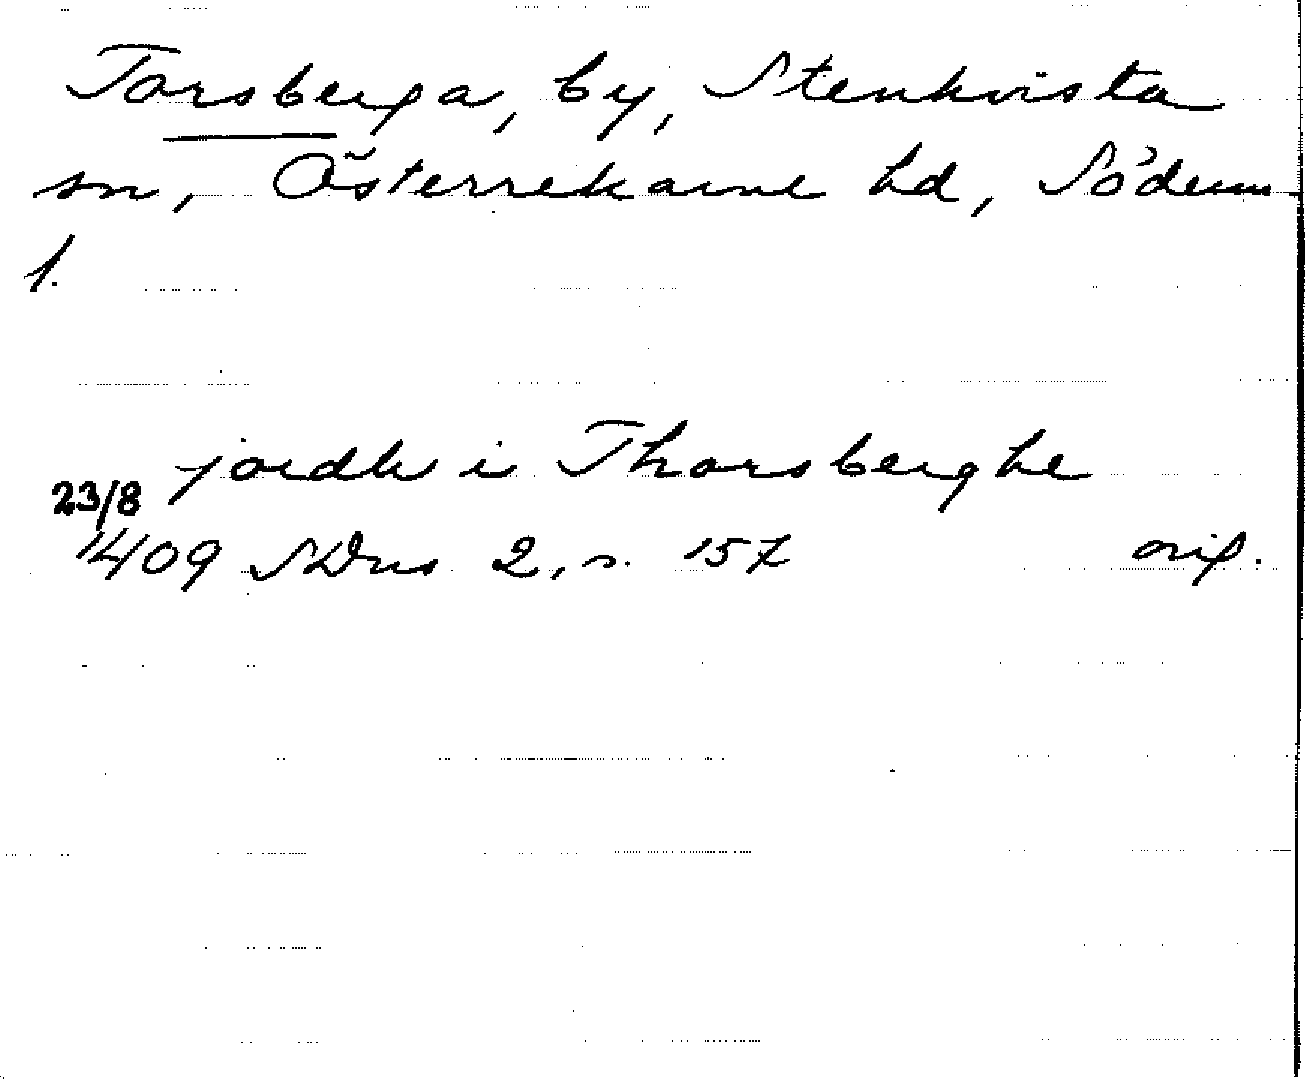 Torsberga, by, Stenkvista
sn, Österrekarne hd, Söderm
l.
jordh i Thorsberghe
23/8
1409 SDns 2, s. 157 orig.